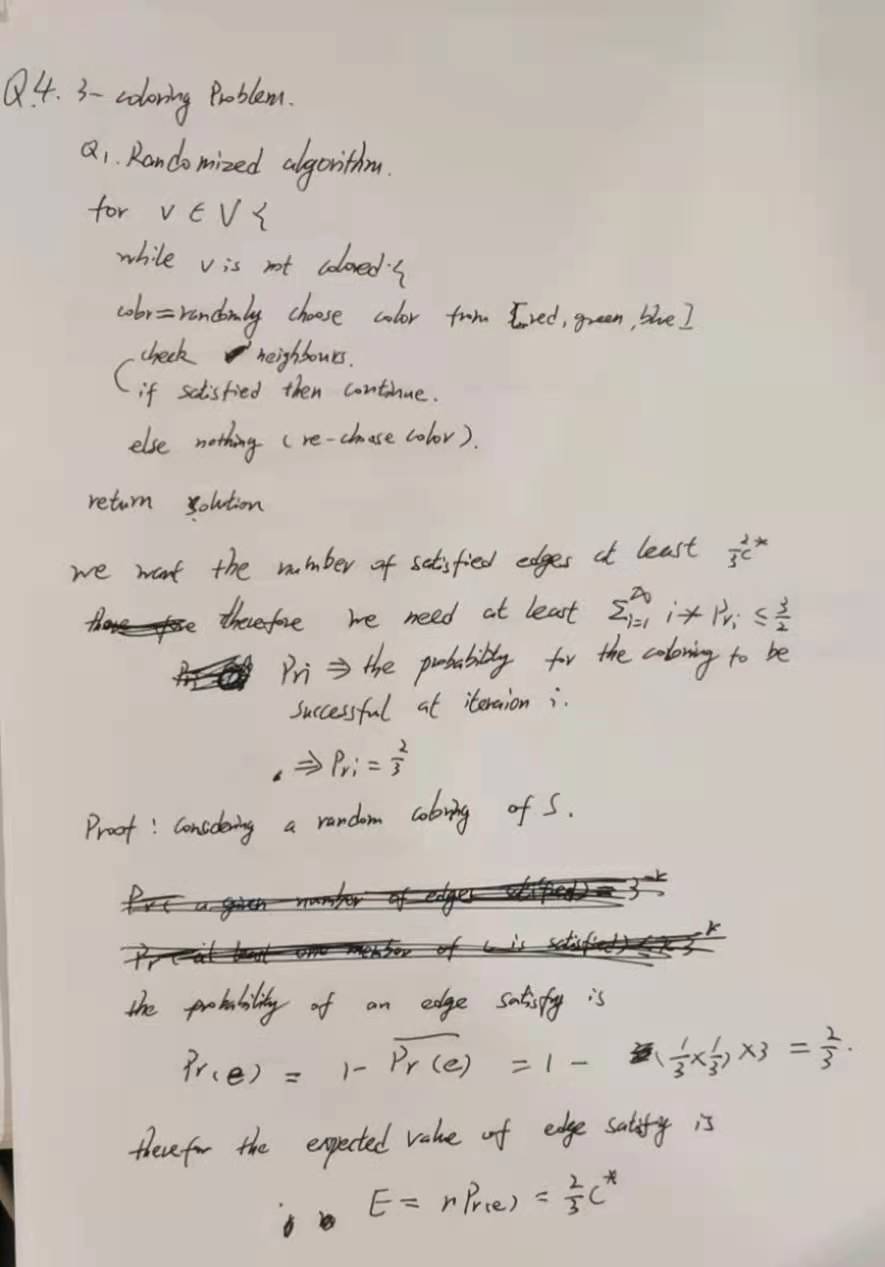 Q.4. 3- coloring Problem.
Q1. Randomized algorithm.
for v ∈ V {
while v is not colored {
color = randomly choose color from [red, green, blue]
check neighbours.
if satisfied then continue.
else nothing (re-choose color).
return solution
we want the number of satisfied edges at least 2/3 c*
therefore we need at least Σ_{i=1}^{∞} i * Pr_i ≤ 3/2
Pri ⇒ the probability for the coloring to be
successful at iteraion i.
⇒ Pri = 2/3
Proof : considering a random coloring of S.
Pr( a given number of edges satisfied) = 3^{-k}
Pr( at least one member of is satisfied) ≤ 3^{-k}
the probability of an edge satisfy is
Pr(e) = 1- \overline{Pr(e)} = 1 - (1/3 × 1/3) × 3 = 2/3.
therefor the expected value of edge satisfy is
E = n Pr(e) = 2/3 C*